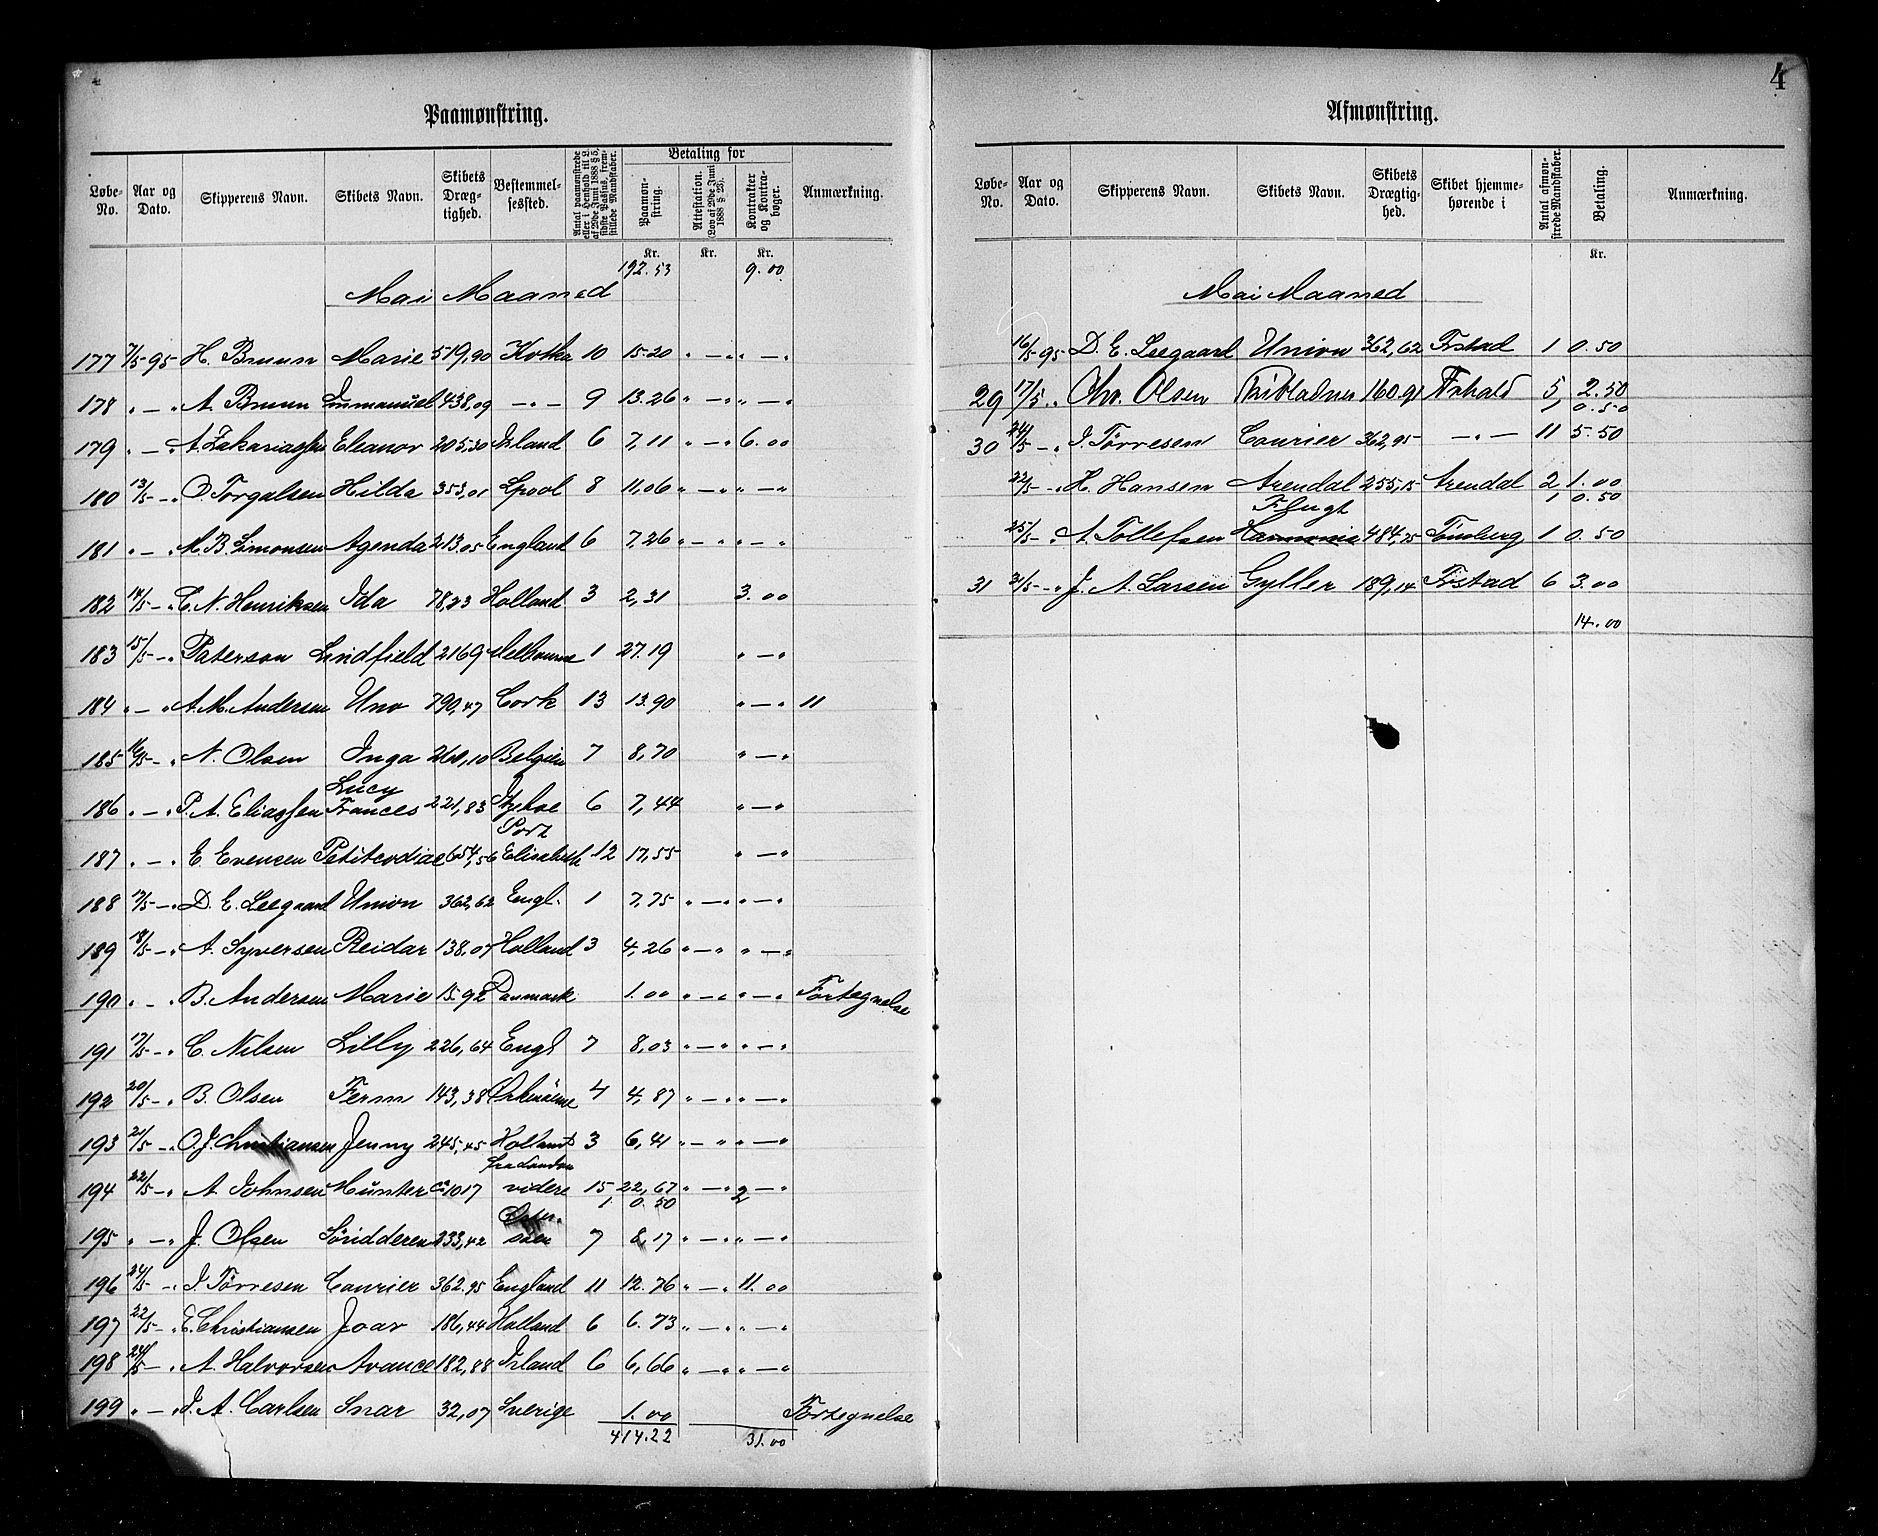 4
Paamønstring.
Løbe-No. Aar og Dato. Skipperens Navn. Skibets Navn. Skibets Dræg-tighed. Bestemmel-sessted. Antal paamønstrede eller i Henhold til L. af 29de Juni 1888 § 5, sidste Passus, frem-stillede Mandskaber. Betaling for Paamøn-string. Attestation. (Lov af 29de Juni 1888 § 23). Kontrakter og Kontra-bøger. Anmærkning.
Kr. Kr. Kr.
192.53 9.00
Mai Maaned
177 7/5-95 H. Bruun Marie 519,90 Kotka 10 15.20 " — " " — "
178 " — " A. Bruun Immanuel 438,09 — " — 9 13.26 " — " " — "
179 " — " A. Zakariassen Eleanor 205,30 Island 6 7,11 " — " 6.00
180 13/5 — " O. Torgalsen Hilda 353,01 Lpool 8 11,06 " — " " — "
181 " — " M. B. Simonsen Agenda 213.05 England 6 7,26 " — " " — "
182 14/5 — " C. N. Henriksen Ida 78,23 Holland 3 2,31 3.00
183 15/5 — " Paterson Lindfield 2169 Melbourne 1 27.19 " — "
184 " — " A. M. Andersen Uno 790,47 Cork 13 13.90 " — " 11
185 16/5 — " N. Olsen Inga 260,10 Belgien 7 8,70 " — "
186 " — " P. A. Eliassen Lucy Frances 221,83 6 7,44 " — "
187 " — " E. Evensen Petitcodiac 654,56 Port Elisabeth 12 17,55 " — "
188 17/5 — " D. E. Leegaard Union 362,62 Engl. 1 7,75 " — " " — "
189 18/5 — " A. Syversen Reidar 138,07 Holland 3 4,26 " — " " — "
190 " — " B. Andersen Marie 15.92 Danmark 1.00 " — " " — " Fortegnelse
191 17/5 — " C. Nilsen Lilly 226,64 Engl 7 8,03 " — " " — "
192 20/5 — " B. Olsen Ferm 143,38 4 4,87 " — " " — "
193 21/5 — " O. J. Christiansen Jenny 245,45 Holland 3 6,41 " — " " — "
194 22/5 — " A. Johnsen Hunter ca 1017 fra London videre 15 22,67 " — " 2 — "
1 0.50
195 " — " J. Olsen 233,42 Østersøen 7 8,17 " — " " — "
196 24/5 — " I. Tørresen Courier 362.95 England 11 12.76 " — " 11.00
197 22/5 — " E. Christiansen Joar 186,44 Holland 6 6.73 " — " " — "
198 24/5 — " A. Halvorsen Avance 182,88 Island 6 6,66 " — " " — "
199 " — " I. A. Carlsen Snar 32,07 Sverige 1.00 Fortegnelse
414.22 31.00
4
Afmønstring.
Løbe-No. Aar og Dato. Skipperens Navn. Skibets Navn. Skibets Drægtig-hed. Skibet hjemme-hørende i Antal afmøn-strede Mandskaber. Betaling. Anmærkning.
Kr.
Mai Maaned
16/5-95 D. E. Leegaard Union 362,62 Frstad 1 0.50
29 17/5 " Chr. Olsen 160.91 Frhald 5 2.50
1 0.50
30 24/5 — " I. Tørresen Courier 362,95 — " — 11 5.50
22/5 — " H. Hansen Arendal 255,15 Arendal 2 1.00
1 0.50
25/5 — " A. Tollefsen Flugt Harmonia 484,75 Tønsberg 1 0.50
31 31/5 — " J. A. Larsen Gyller 189,14 Frstad 6 3.00
14.00